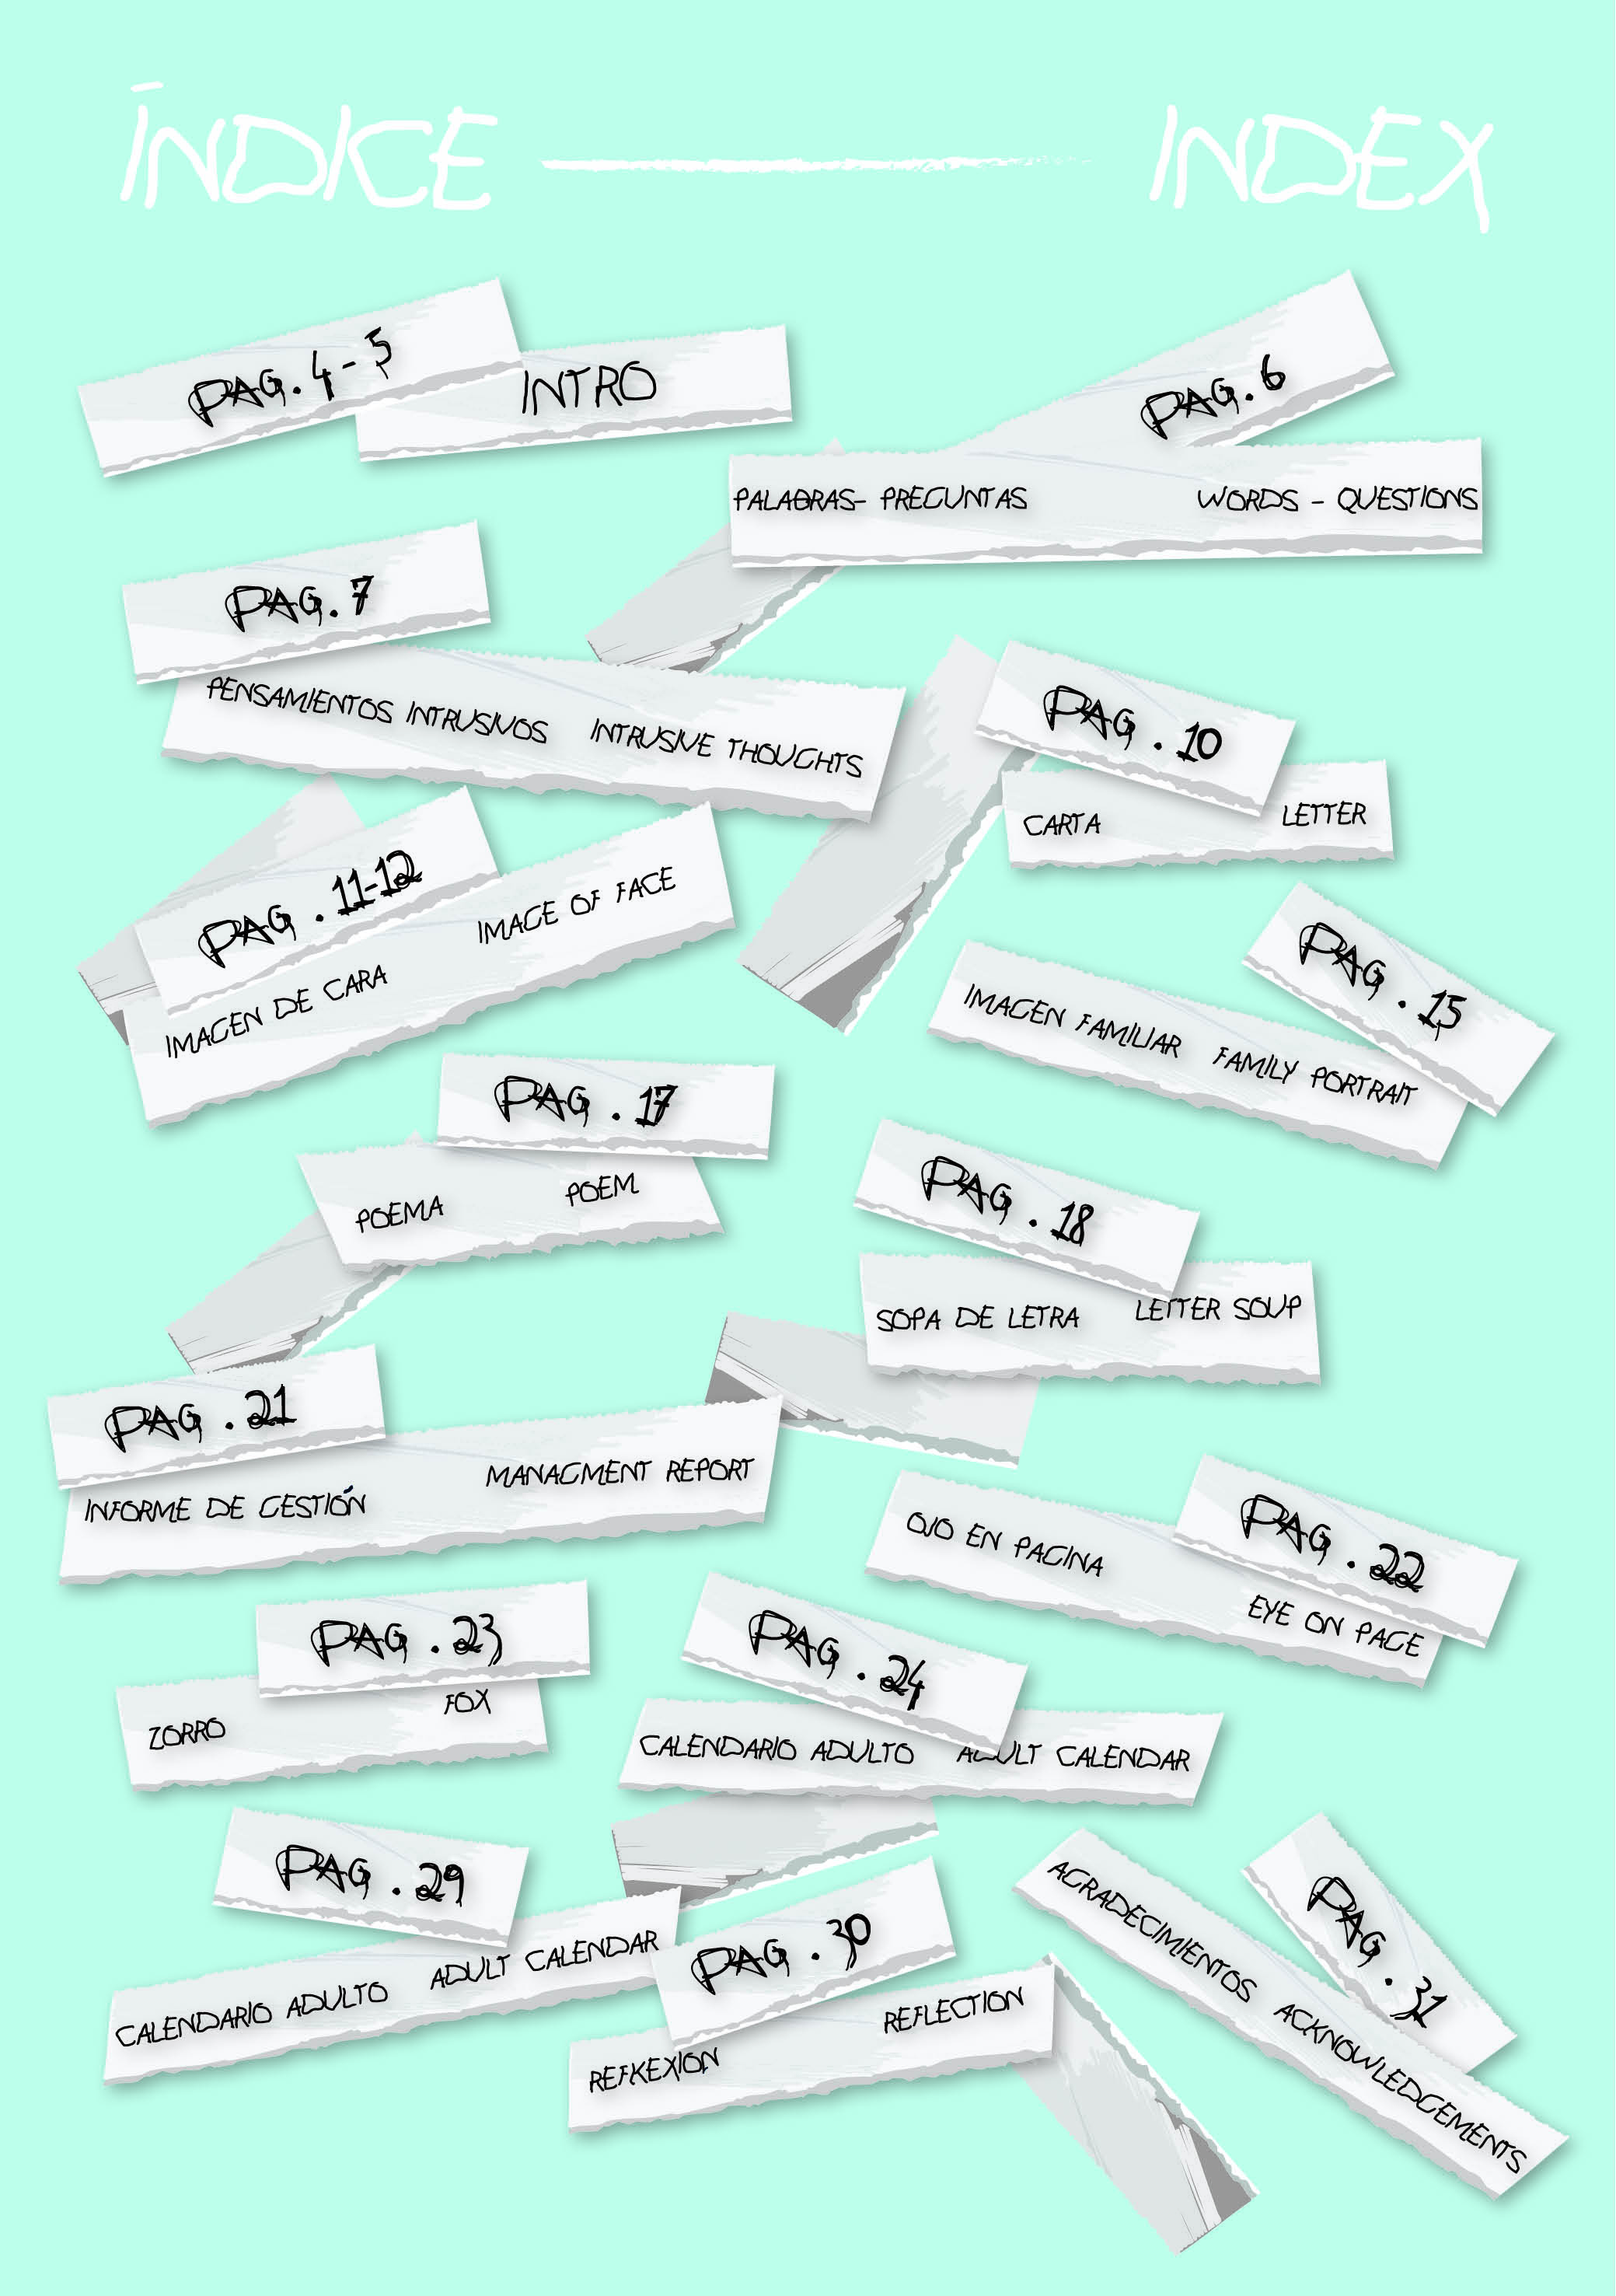 ÍNDICE INDEX
PAG. 4-5
INTRO
PAG. 6
PALABRAS- PREGUNTAS WORDS - QUESTIONS
PAG. 7
PENSAMIENTOS INTRUSIVOS INTRUSIVE THOUGHTS
PAG. 10
CARTA LETTER
PAG. 11-12
IMAGEN DE CARA IMAGE OF FACE
PAG. 15
IMAGEN FAMILIAR FAMILY PORTRAIT
PAG. 17
POEMA POEM
PAG. 18
SOPA DE LETRA LETTER SOUP
PAG. 21
INFORME DE GESTIÓN MANAGMENT REPORT
PAG. 22
OJO EN PAGINA EYE ON PAGE
PAG. 23
ZORRO FOX
PAG. 24
CALENDARIO ADULTO ADULT CALENDAR
PAG. 29
CALENDARIO ADULTO ADULT CALENDAR
PAG. 30
REFKEXION REFLECTION
PAG. 31
AGRADECIMIENTOS ACKNOWLEDGEMENTS